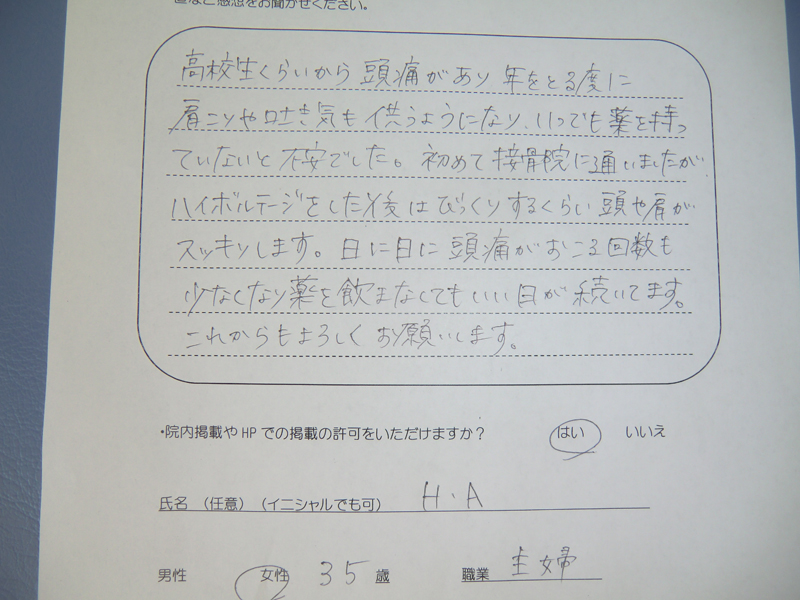 直なご感想をお聞かせください。
高校生くらいから頭痛があり年をとる度に
肩こりや吐き気も伴うようになり、いつでも薬を持っ
ていないと不安でした。初めて接骨院に通いましたが
ハイボルテージをした後はびっくりするくらい頭や肩が
スッキリします。日に日に頭痛がおこる回数も
少なくなり薬を飲まなくてもいい日が続いてます。
これからもよろしくお願いします。
・院内掲載やHPでの掲載の許可をいただけますか？ はい いいえ
氏名 （任意） （イニシャルでも可） H.A
男性 女性 35歳 職業 主婦